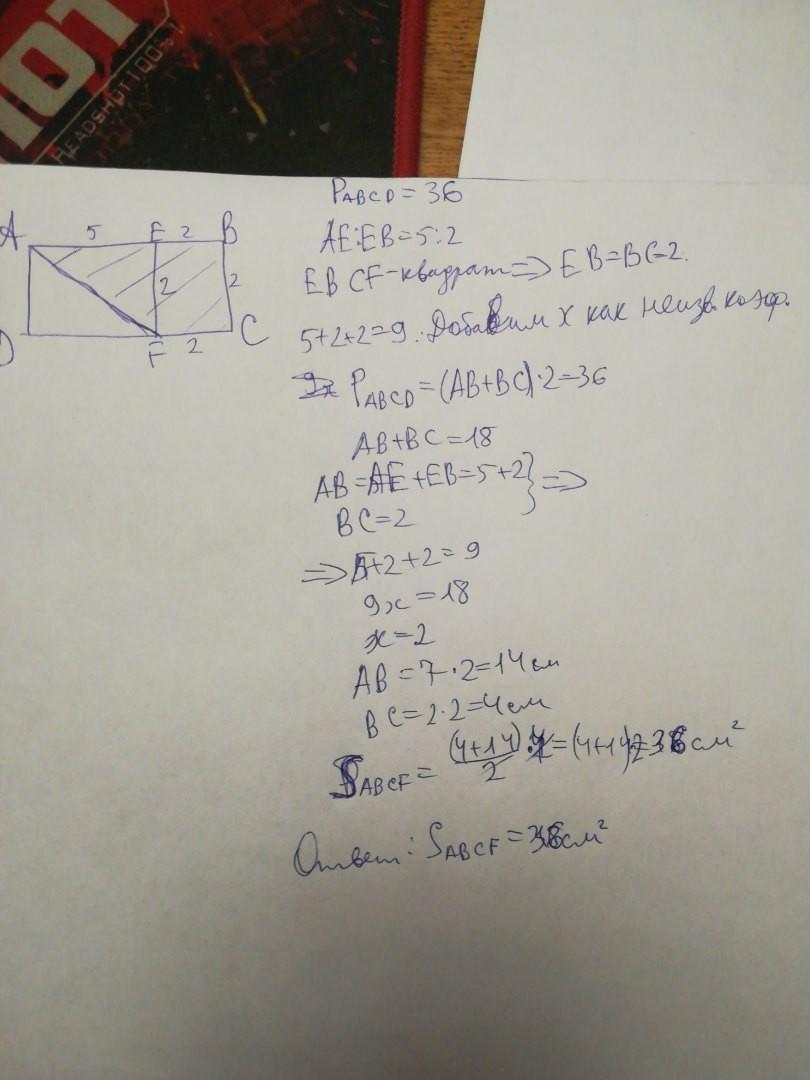 101
HEADSHOT 100%
P ABCD = 36
A 5 E 2 B
AE:EB=5:2
EBCF-квадрат => EB=BC=2.
2 2
5+2+2=9. Добавим x как неизв. коэф.
D F 2 C
P ABCD = (AB+BC)·2=36
AB+BC=18
AB=AE+EB=5+2} =>
BC=2
=> 5+2+2=9
9x=18
x=2
AB=7·2=14см
BC=2·2=4см
S ABCF = (4+14)/2 · 4 = (4+14)2=36см²
Ответ: S ABCF = 36см²